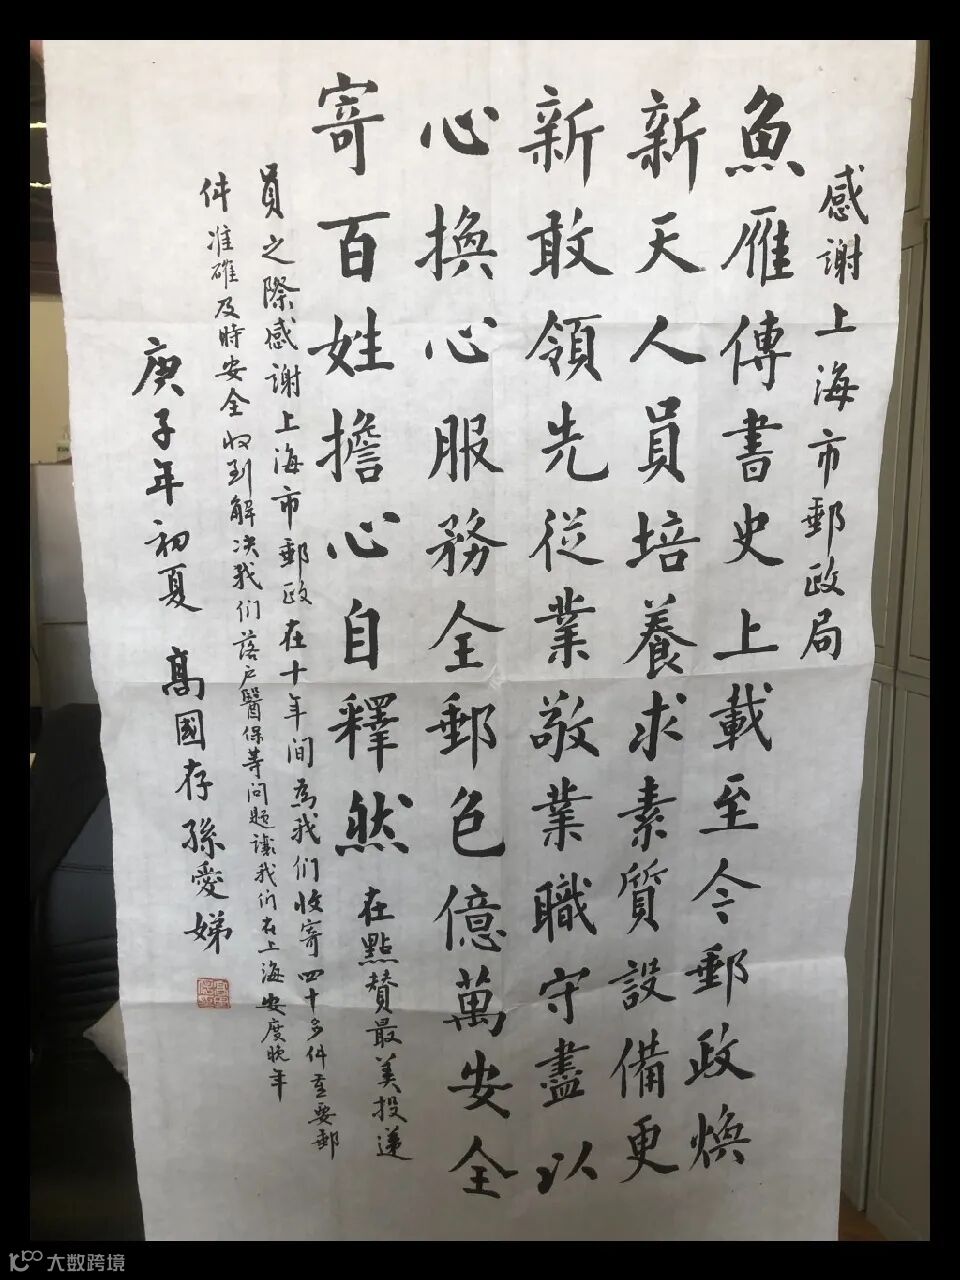 感謝上海市郵政局
魚雁傳書史上載至今郵政煥
新天人員培養求素質設備更
新敢領先從業敬業職守盡以
心換心服務全郵色億萬安全
寄百姓擔心自釋然在點贊最美投遞
員之際感谢上海市郵政在十年间為我们收寄四十多件重要郵
件准確及時安全收到解决我们落户醫保等问题讓我们在上海安度晚年
庚子年初夏 高國存孫愛娣
大数跨境